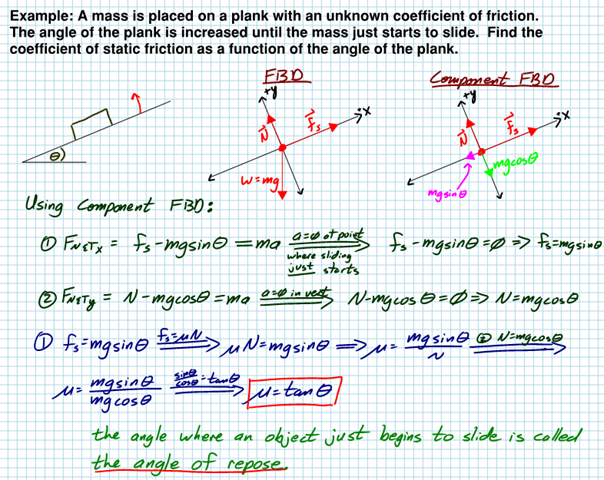 Example: A mass is placed on a plank with an unknown coefficient of friction.
The angle of the plank is increased until the mass just starts to slide. Find the
coefficient of static friction as a function of the angle of the plank.
FBD
Component FBD
+y
+x
N
fs
W=mg
θ)
+y
+x
N
fs
mgcosθ
mgsinθ
Using Component FBD:
① FNETx = fs-mgsinθ = ma a=∅ at point where sliding just starts fs-mgsinθ=∅ => fs=mgsinθ
② FNETy = N-mgcosθ=ma a=∅ in vert N-mgcosθ=∅ => N=mgcosθ
① fs=mgsinθ fs=μN μN=mgsinθ => μ= mgsinθ/N ② N=mgcosθ
μ= mgsinθ/mgcosθ sinθ/cosθ=tanθ μ=tanθ
the angle where an object just begins to slide is called
the angle of repose.